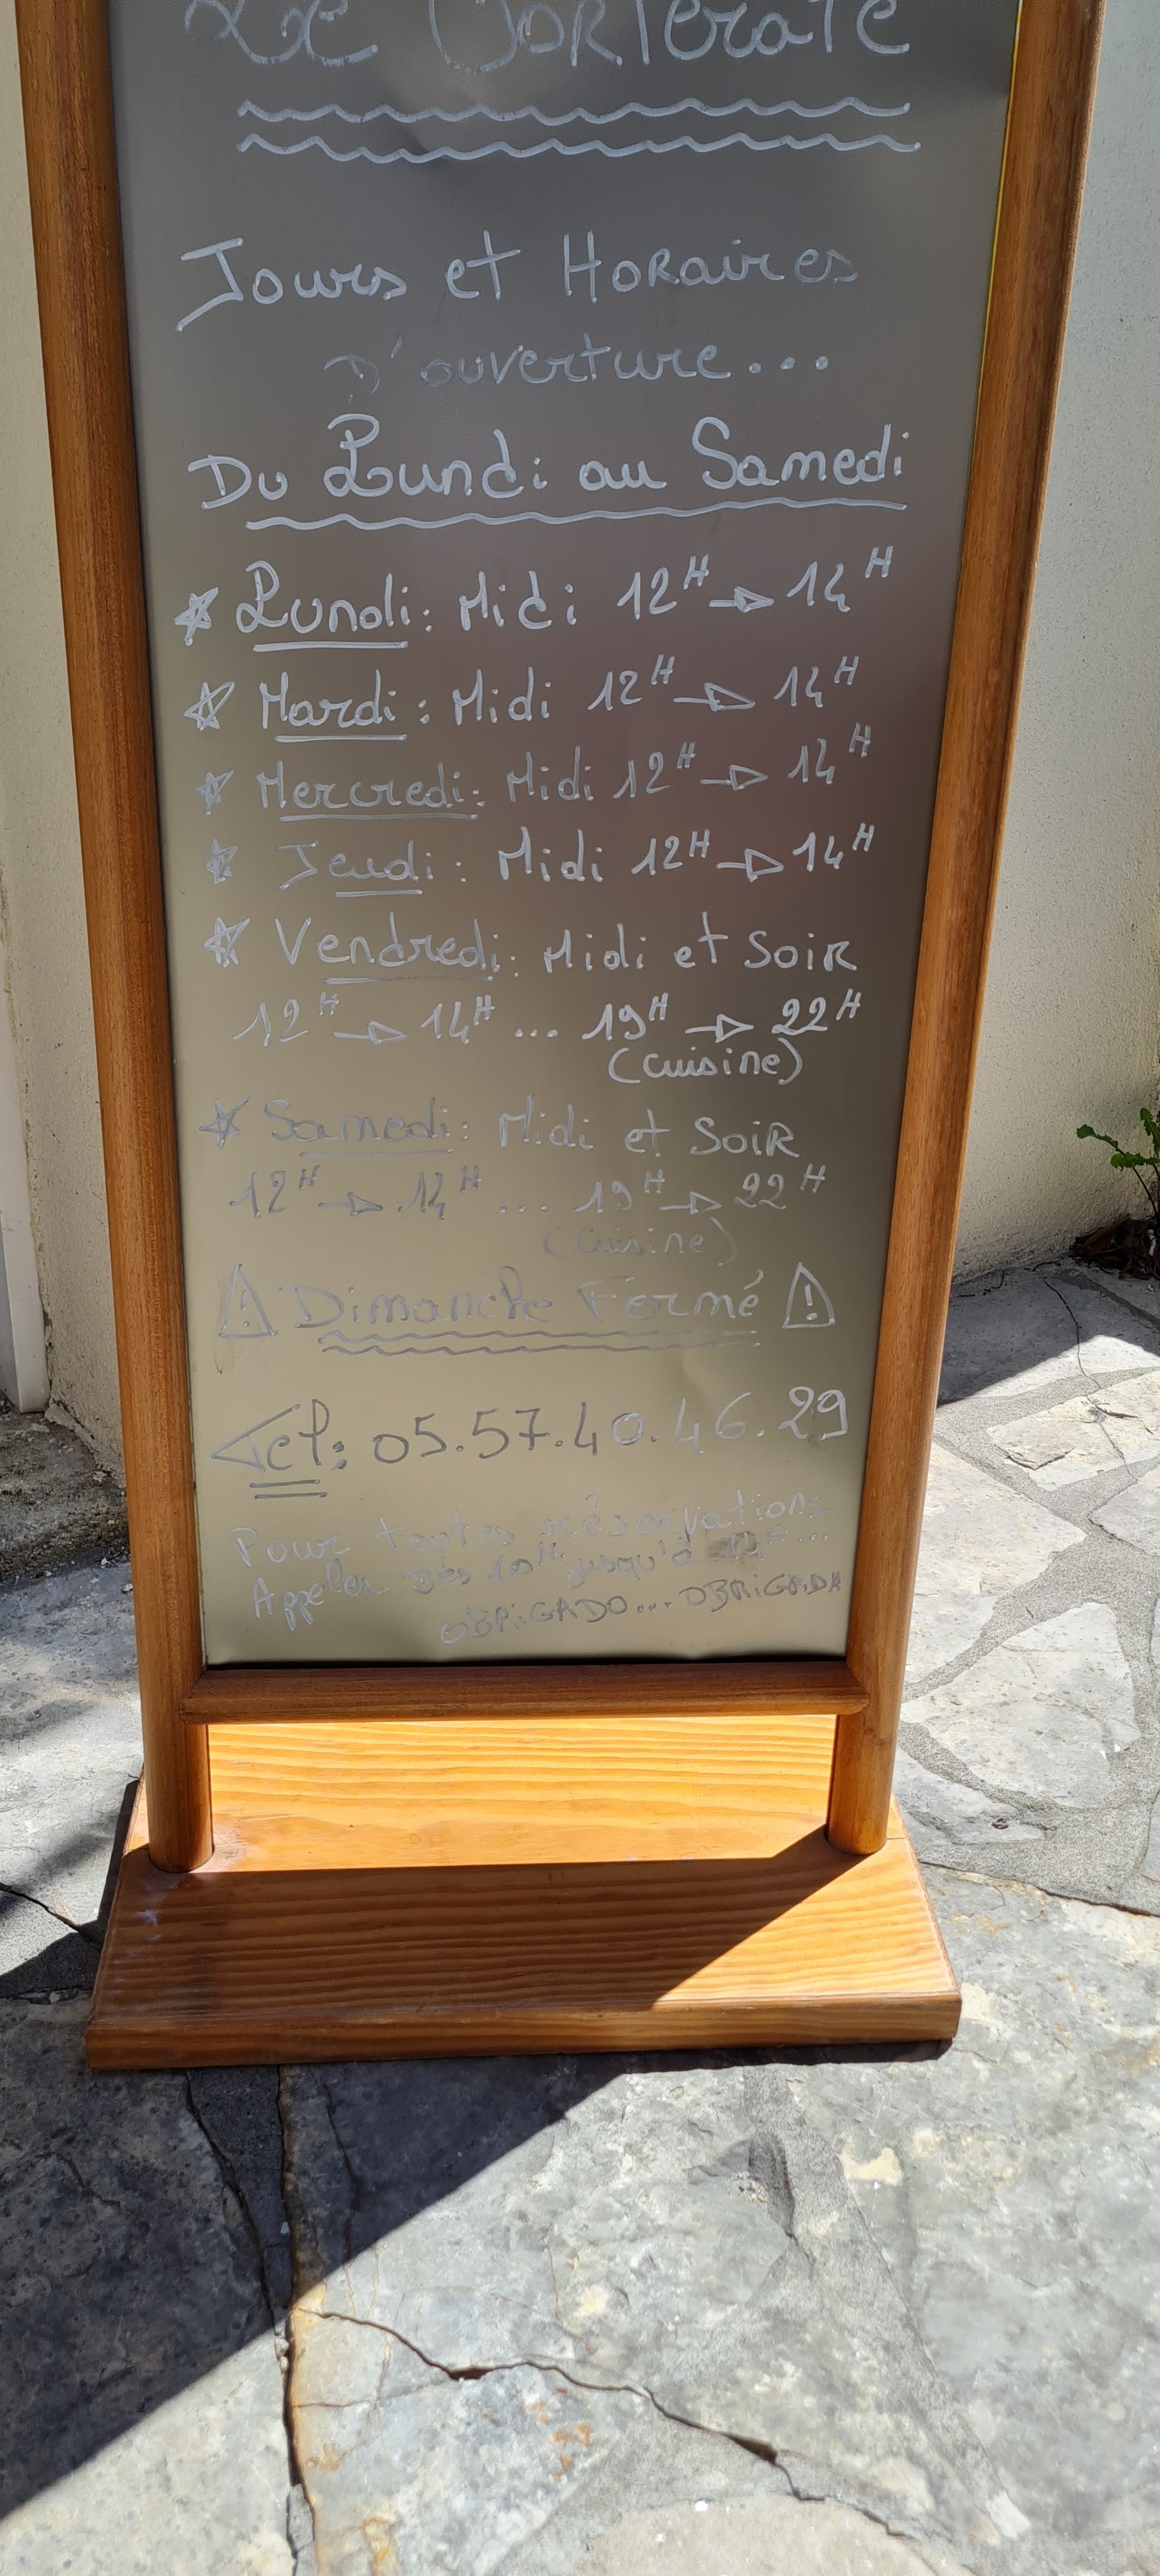 Le Corterate
Jours et Horaires
D'ouverture...
Du Lundi au Samedi
Lundi: Midi 12H → 14H
Mardi: Midi 12H → 14H
Mercredi: Midi 12H → 14H
Jeudi: Midi 12H → 14H
Vendredi: Midi et Soir
12H → 14H ... 19H → 22H
(cuisine)
Samedi: Midi et Soir
12H → 14H ... 19H → 22H
(cuisine)
Dimanche Fermé
Tel: 05.57.40.46.29
Pour toutes réservations
Appeler dès 10H jusqu'à 14H...
OBRIGADO... OBRIGADA